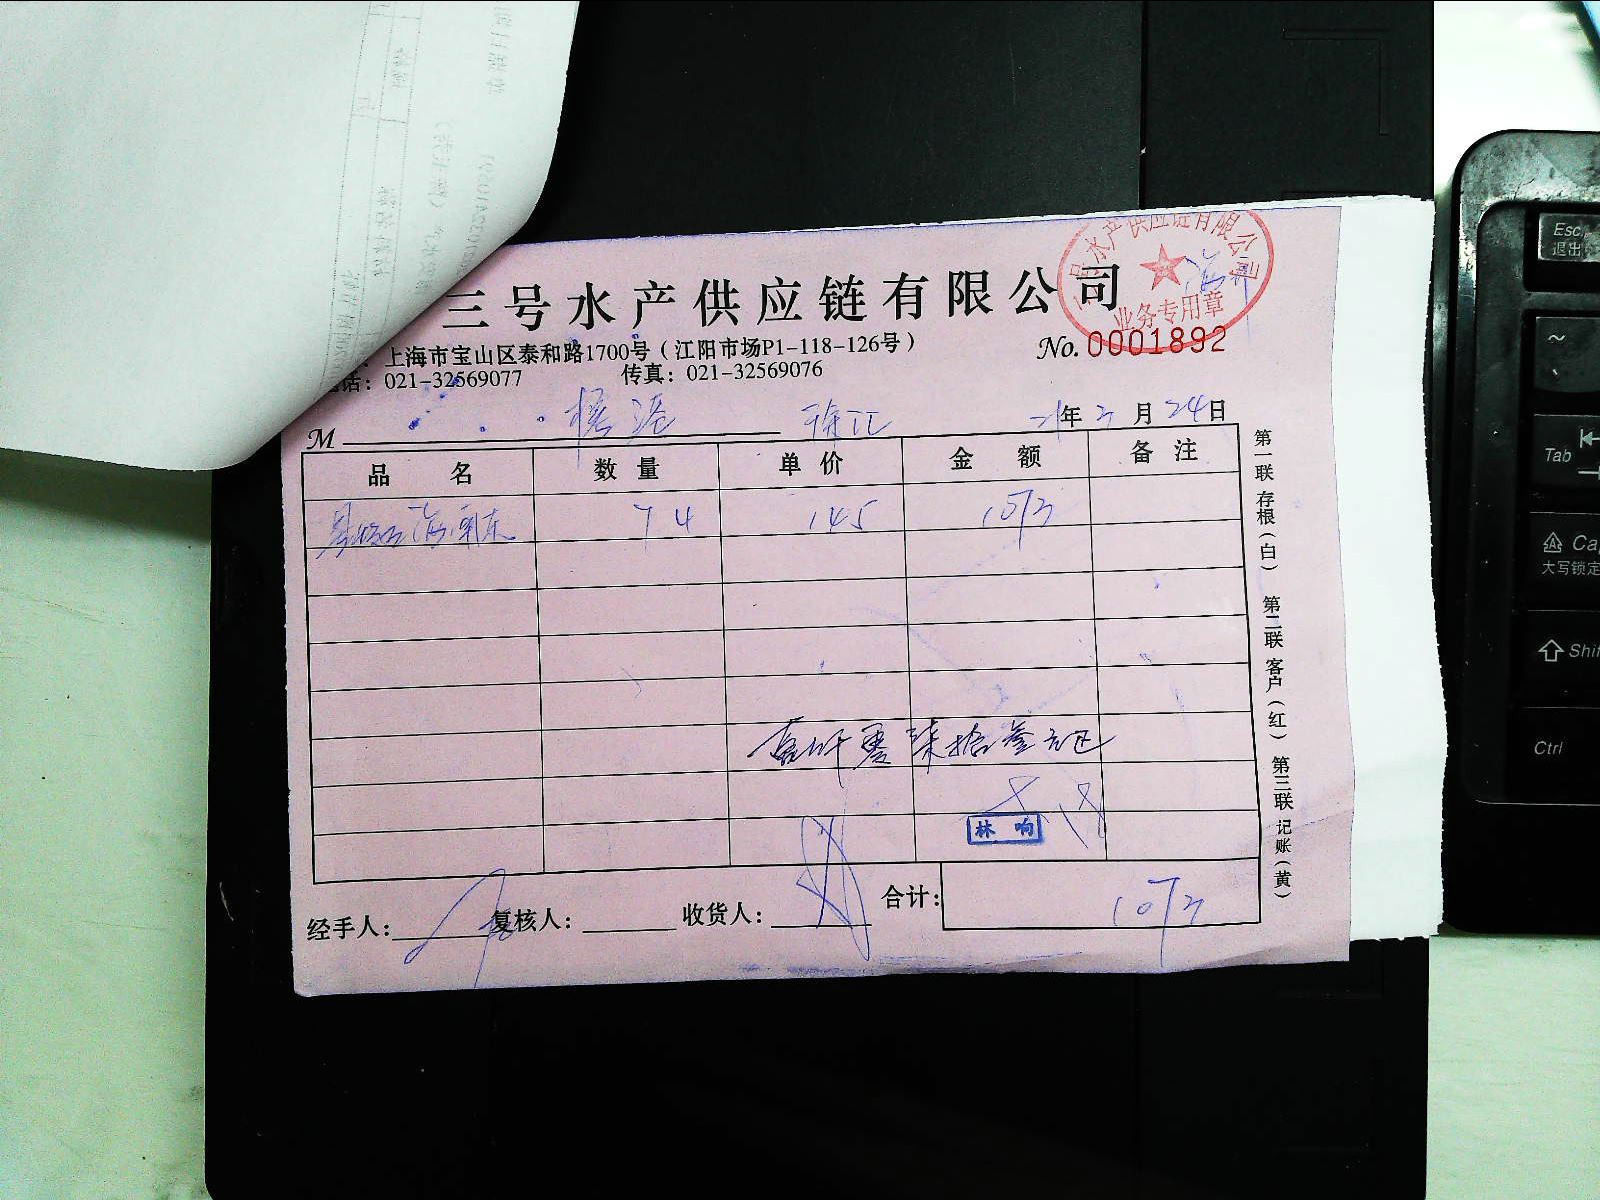 三号水产供应链有限公司
三号水产供应链有限公司
业务专用章
上海市宝山区泰和路1700号（江阳市场P1-118-126号）
No. 0001892
话：021-32569077 传真：021-32569076
M 徐汇 21年3月24日
品名 数量 单价 金额 备注
74 145 1073
壹仟零柒拾叁元正
林响
经手人： 复核人： 收货人： 合计： 1073
第一联 存根（白） 第二联 客户（红） 第三联 记账（黄）
Esc
退出
~
Tab
Ca
大写锁定
Shif
Ctrl